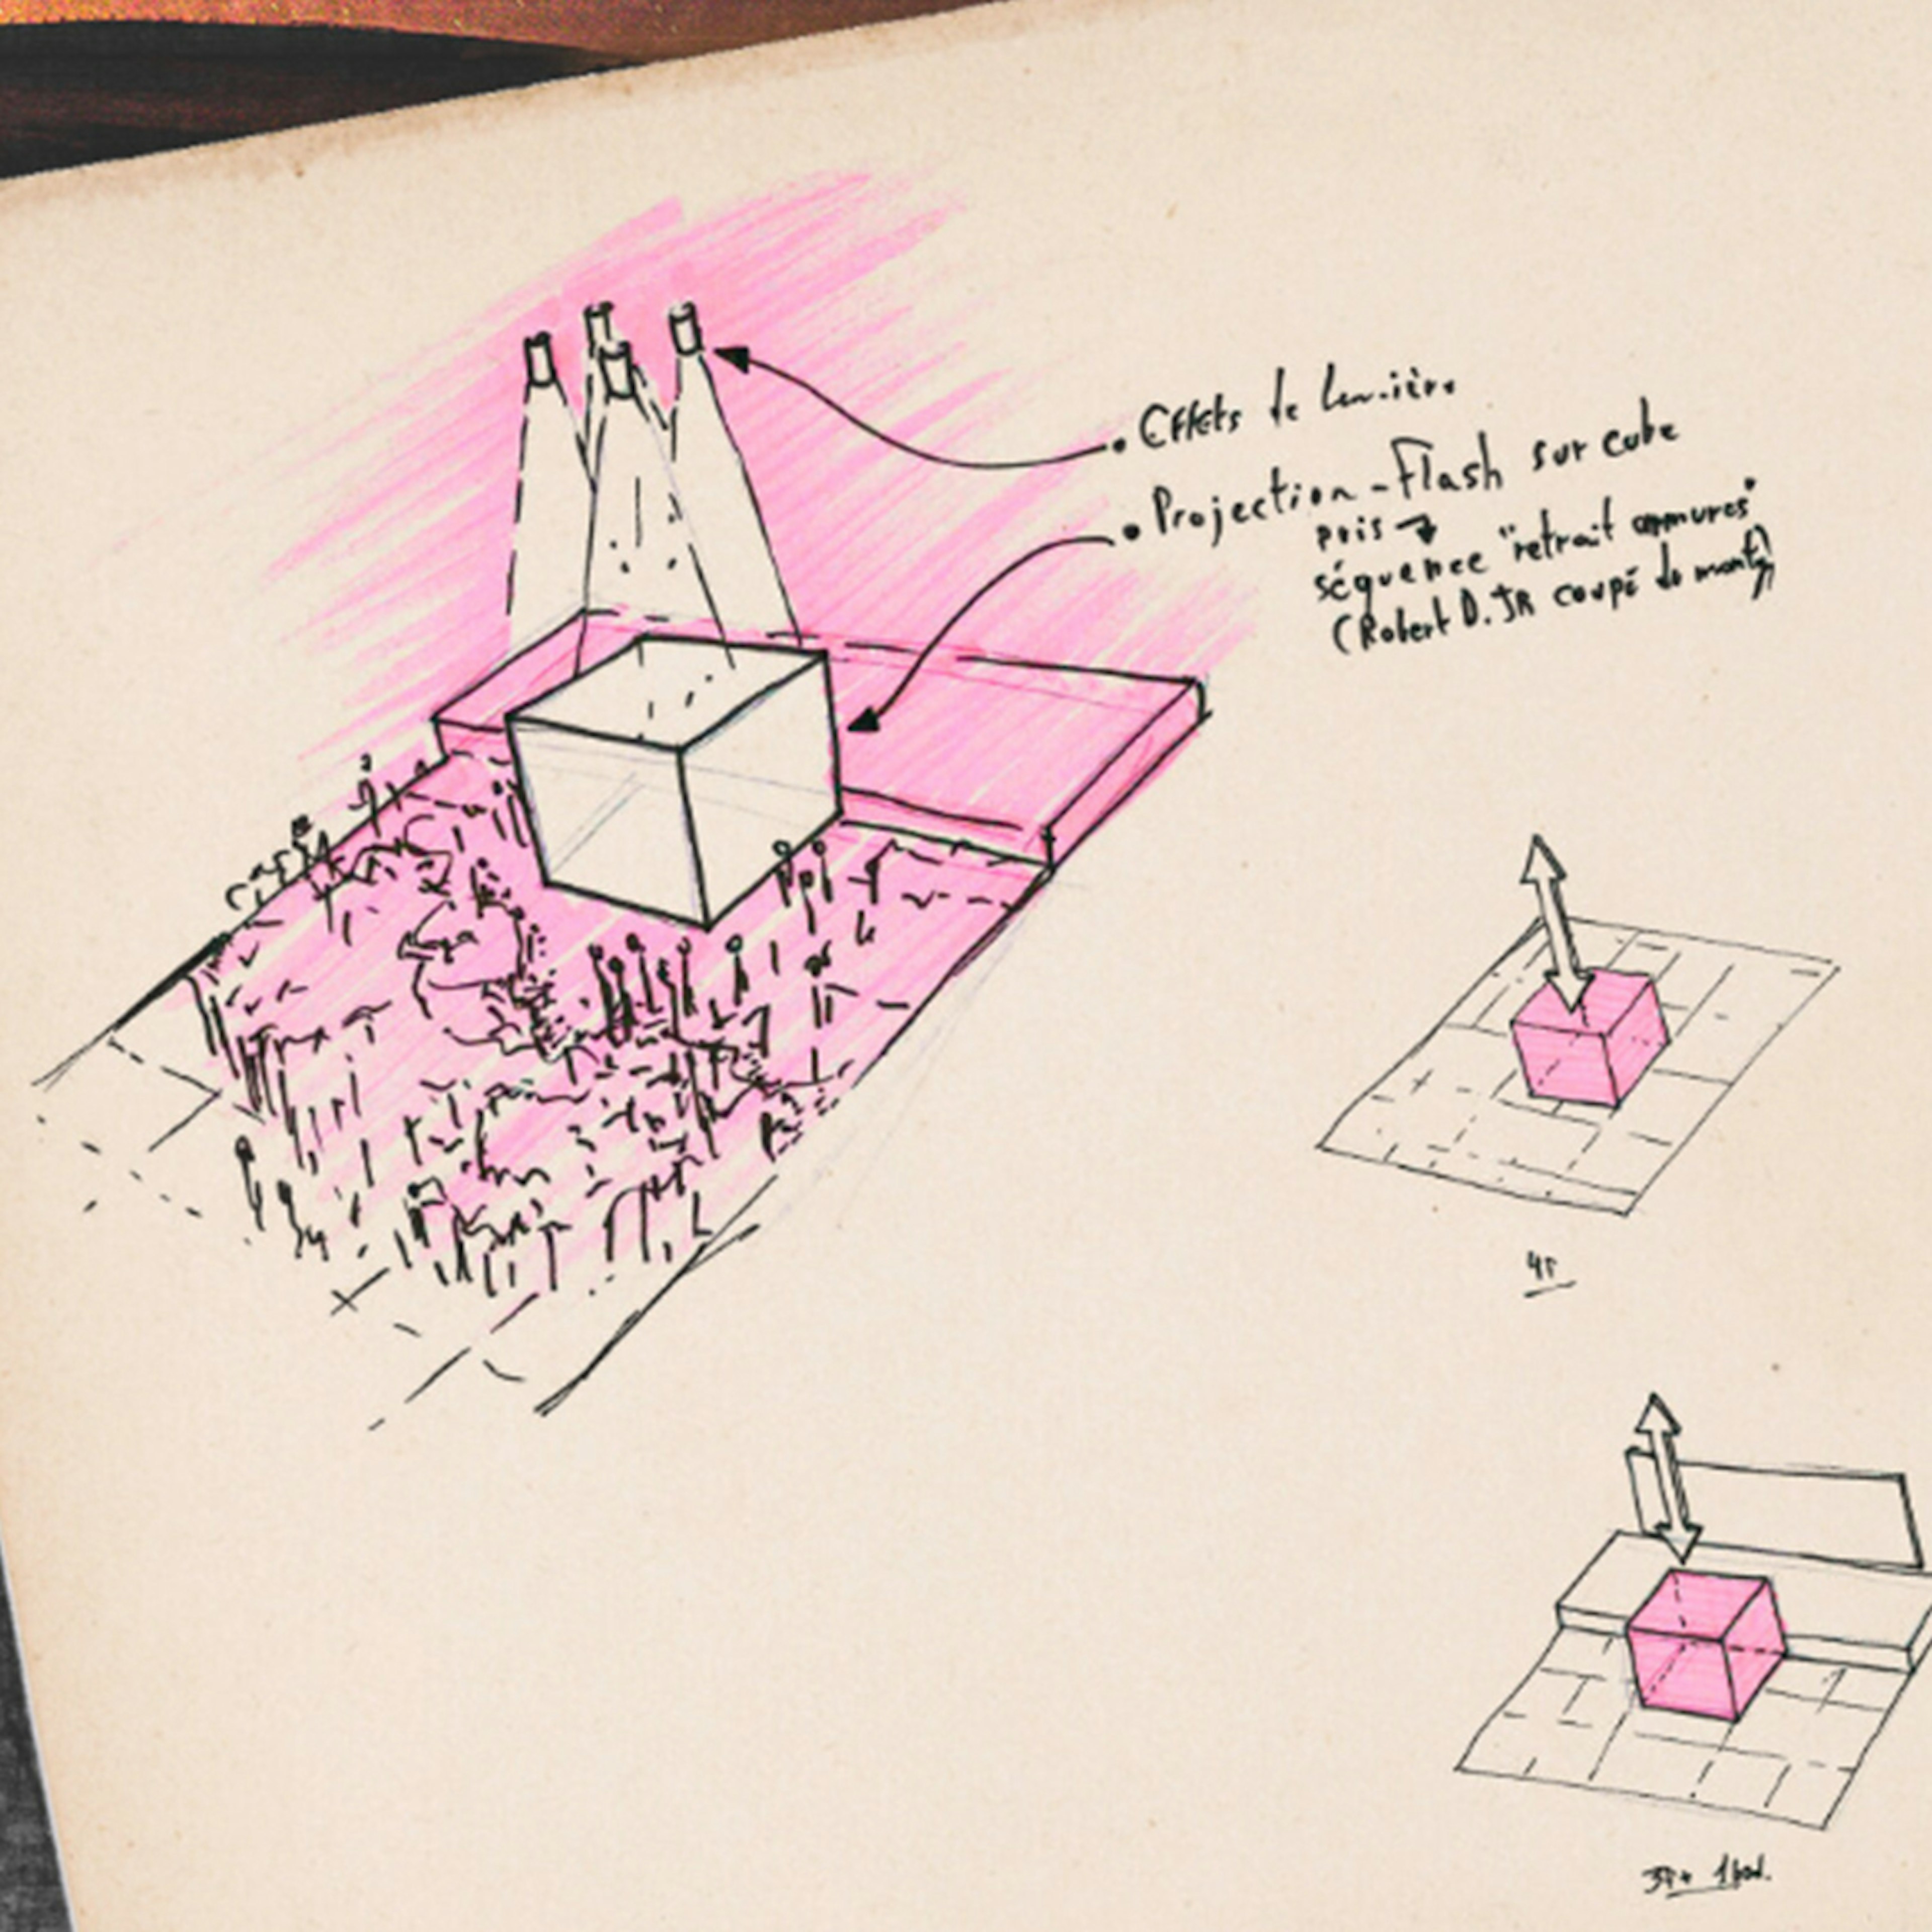 • Effets de lumière
• Projection - Flash sur cube
puis
séquence "retrait armures"
(Robert D. JR coupé du montg)
4F